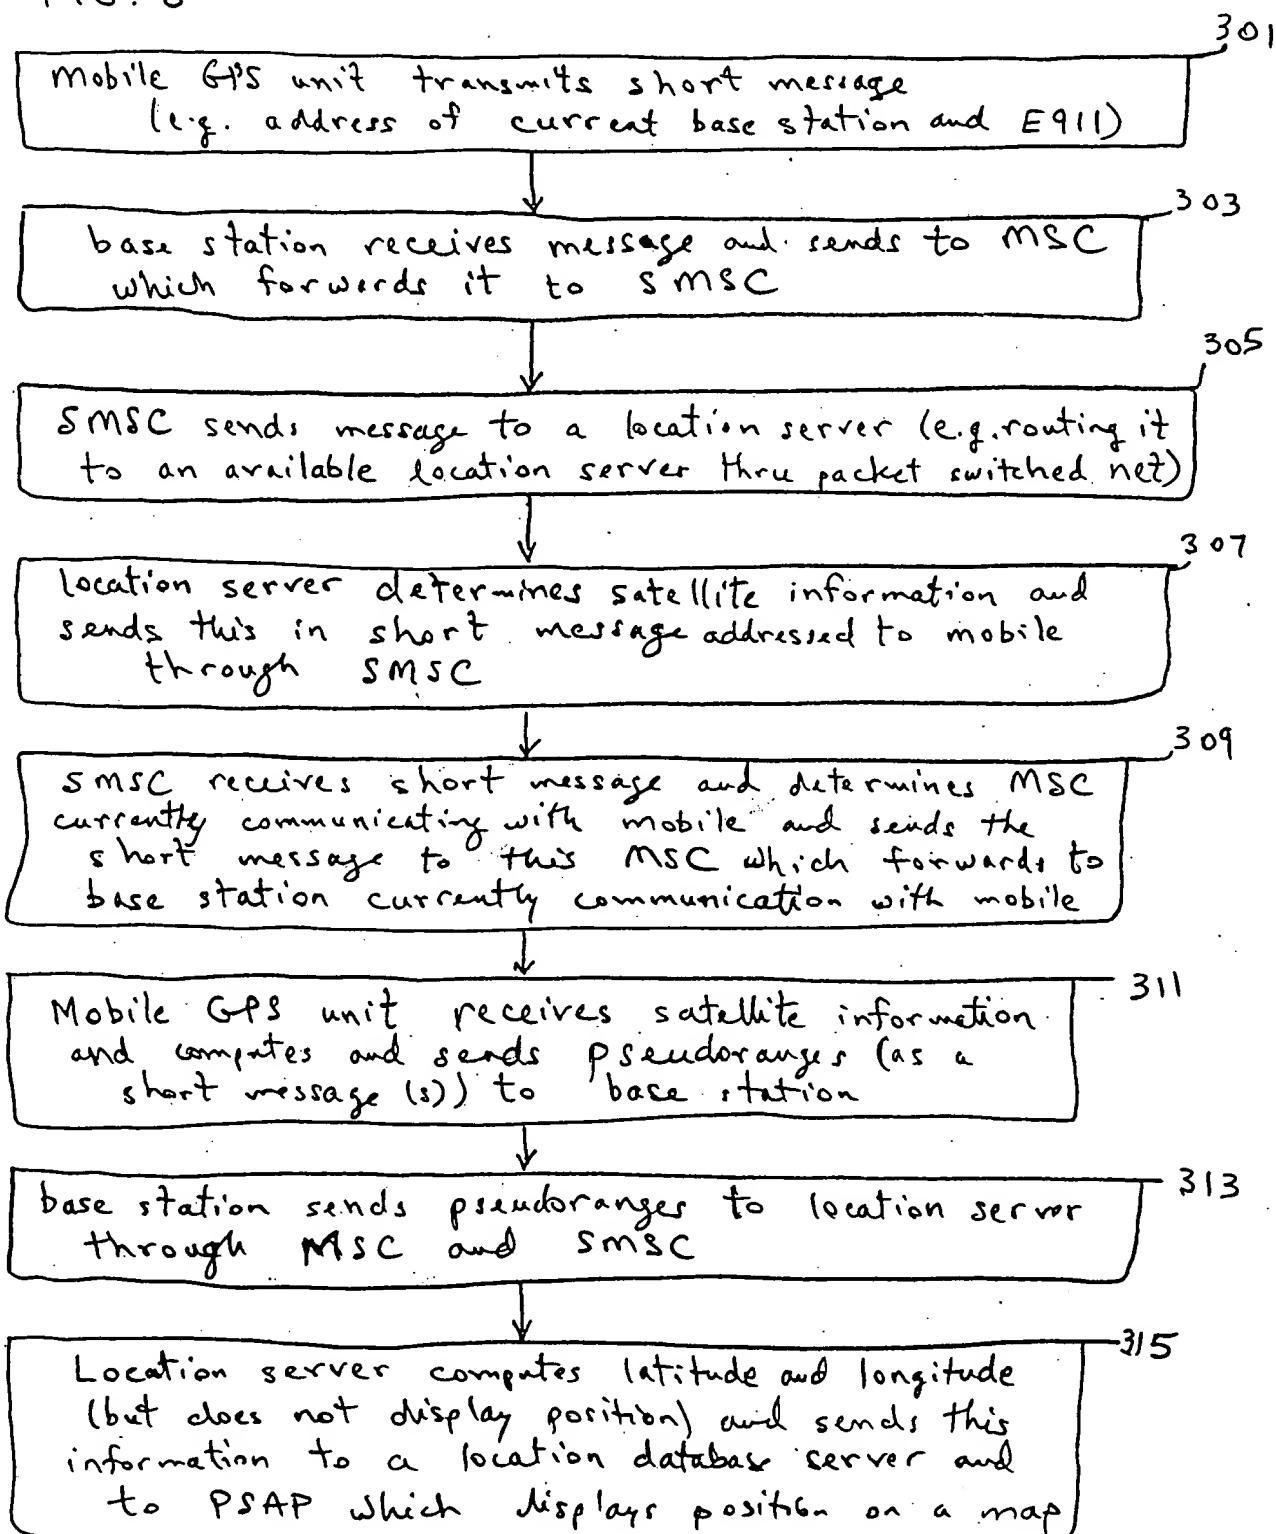 301
Mobile GPS unit transmits short message
(e.g. address of current base station and E911)
303
base station receives message and sends to MSC
which forwards it to SMSC
305
SMSC sends message to a location server (e.g. routing it
to an available location server thru packet switched net)
307
location server determines satellite information and
sends this in short message addressed to mobile
through SMSC
309
SMSC receives short message and determines MSC
currently communicating with mobile and sends the
short message to this MSC which forwards to
base station currently communication with mobile
311
Mobile GPS unit receives satellite information
and computes and sends pseudoranges (as a
short message (s)) to base station
313
base station sends pseudoranges to location server
through MSC and SMSC
315
Location server computes latitude and longitude
(but does not display position) and sends this
information to a location database server and
to PSAP which displays position on a map